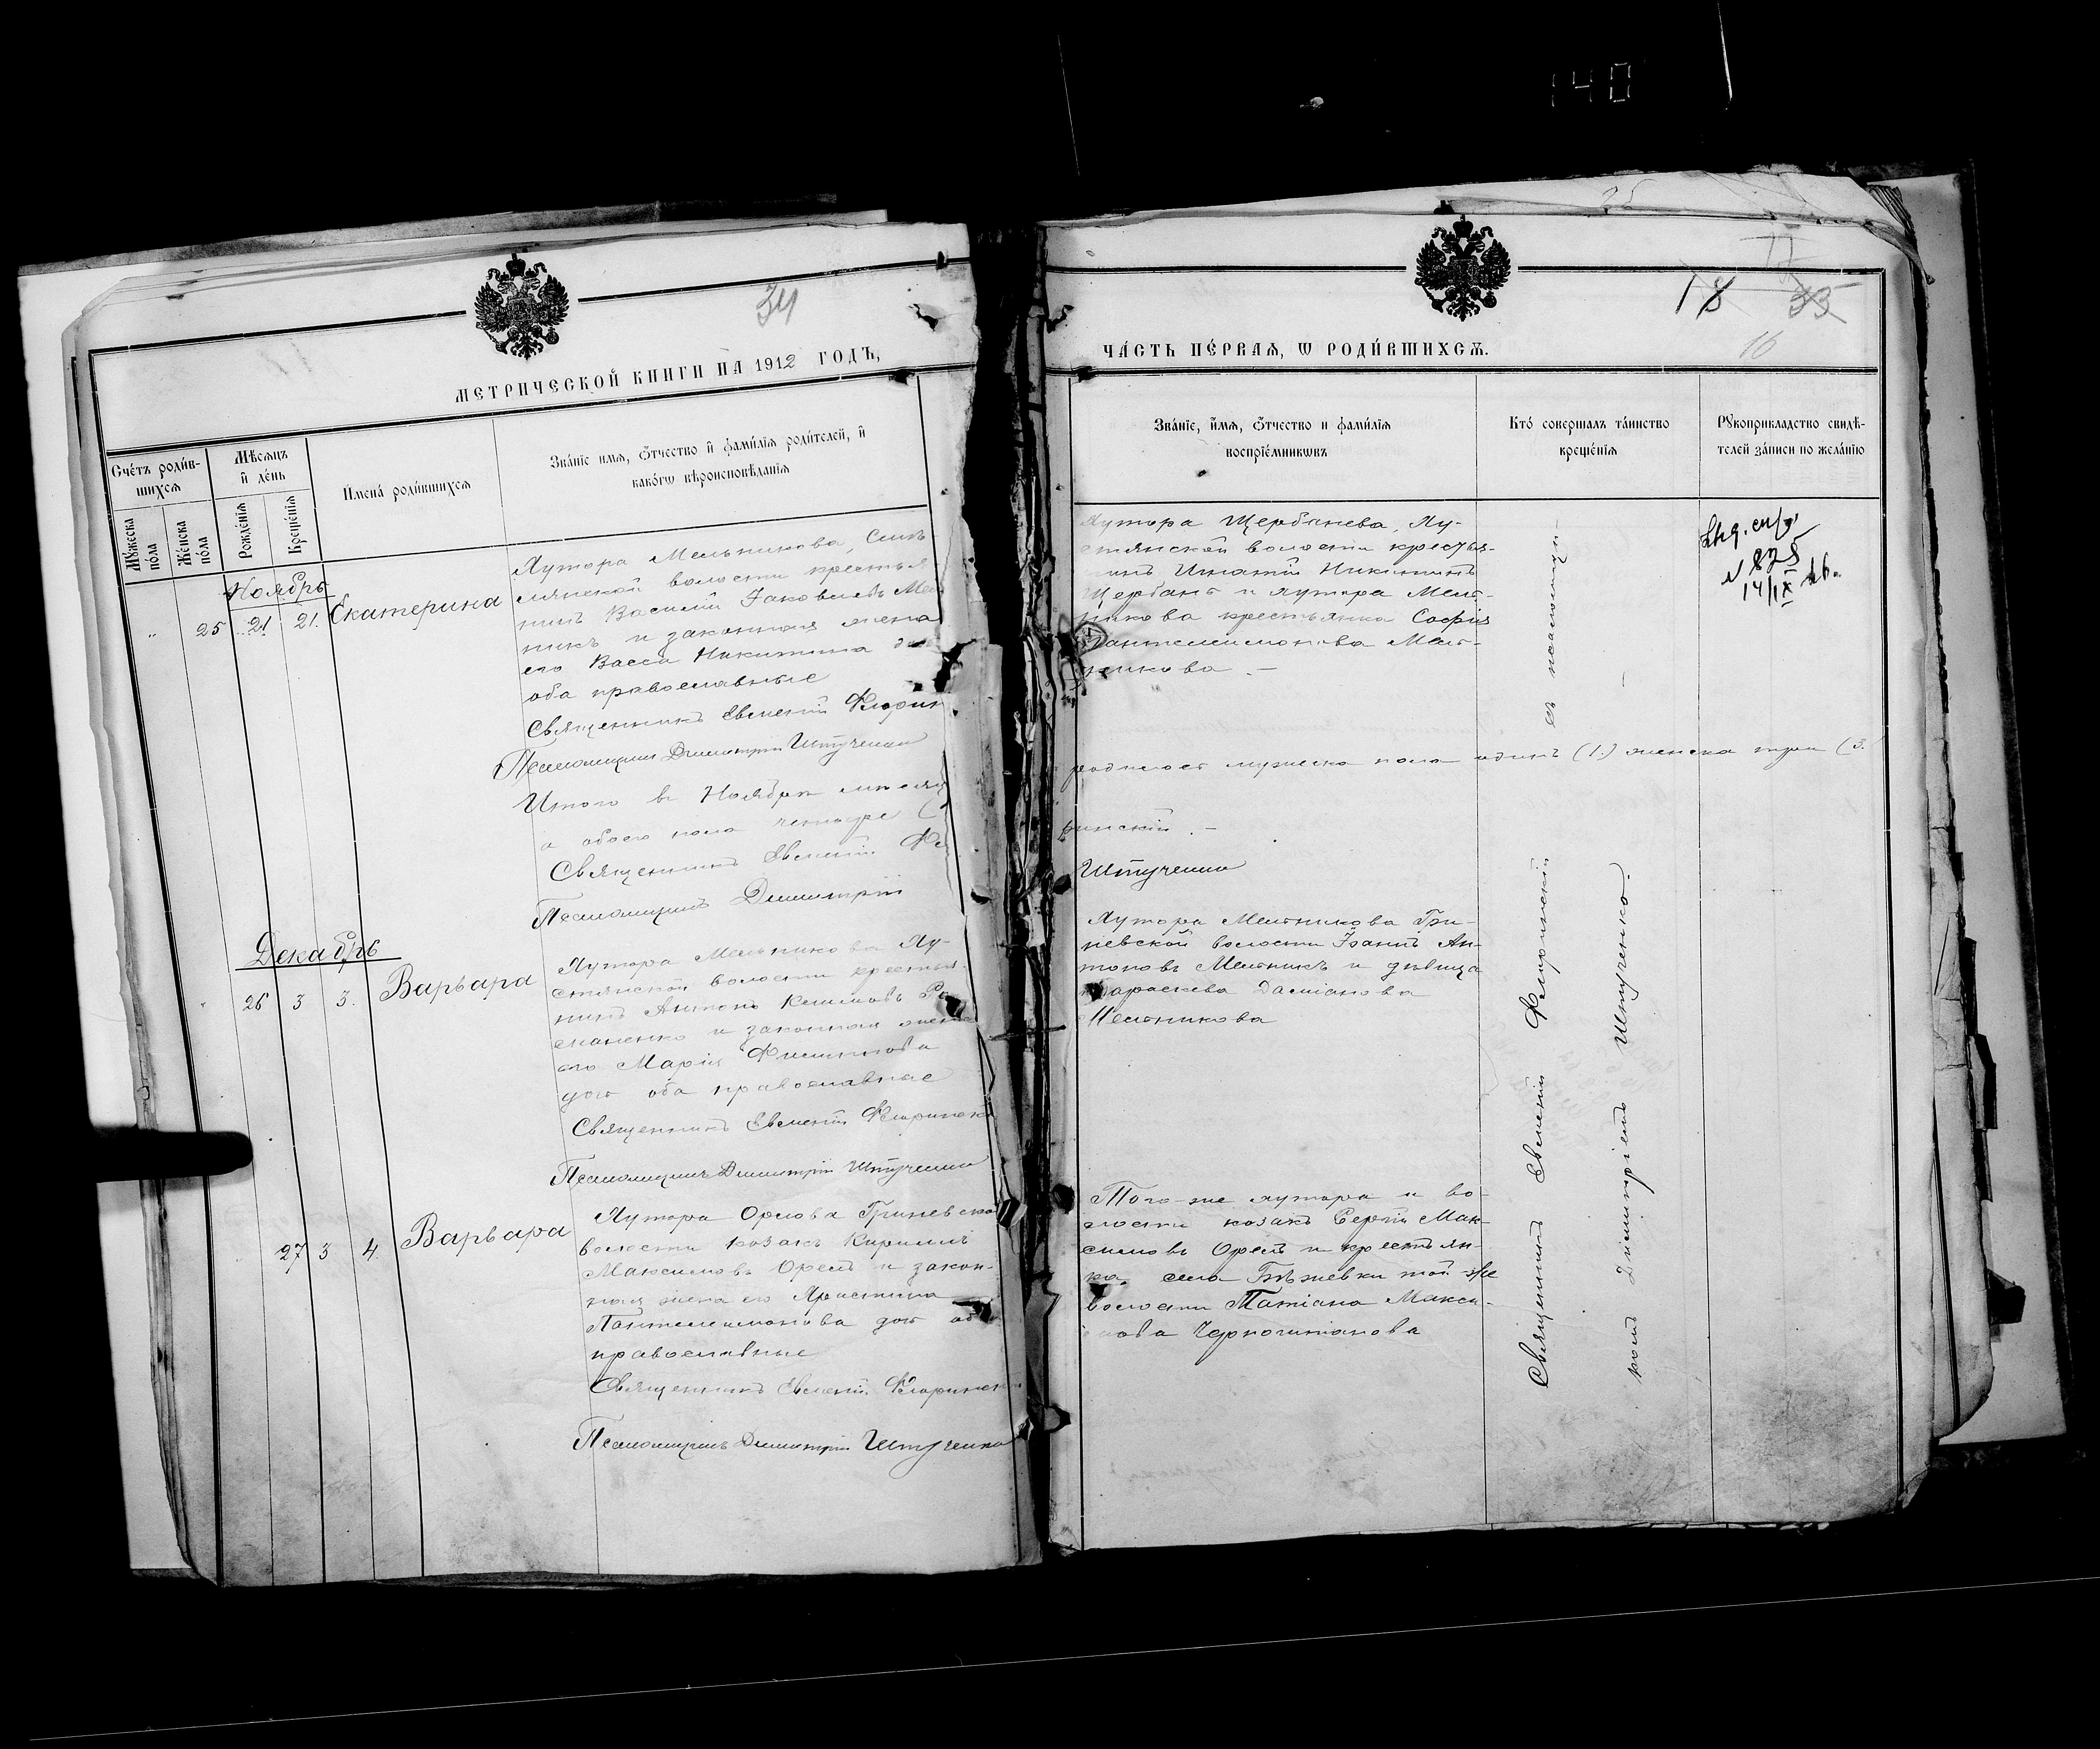 140
34
МЕТРИЧЕСКОЙ КНИГИ НА 1912 ГОДЪ,
Счетъ родившихся
Мужеска пола
Женска пола
Мѣсяцъ и день
Рожденія
Крещенія
Имена родившихся
Званіе имя, отчество и фамилія родителей, и
какогω вѣроисповѣданія
Ноябрь
25 21 21. Екатерина
Хутора Мельникова,
волости крестья
нинъ Василій Іаковлевъ Ме
никъ и законная жена
его Васса Никитина
оба православные
Священникъ Евменій Флорин
Псаломщикъ Димитрій Штученко
Итого въ Ноябрѣ мѣсяц
а обоего пола четыре (
Священникъ Евменій Фл
Псаломщикъ Димитрій
Декабрь
26 3 3. Варвара
Хутора Мельникова Ху-
стянской волости крестья-
нинъ Антонъ Климовъ Ро
маненко и законная жена
его Марія Филиппова
доч оба православные
Священникъ Евменій Флоринск
Псаломщикъ Димитрій Штученко
27 3 4. Варвара
Хутора Орлова Гриневско
волости козакъ Кириллъ
Максимовъ Орелъ и закон-
ная жена его Христина
Пантелеимонова доч об
православные
Священникъ Евменій Флоринск
Псаломщикъ Димитрій Штученко
25
18 33
16
ЧАСТЬ ПЕРВАЯ, Ѡ РОДИВШИХСЯ.
Званіе, имя, отчество и фамилія
воспріемникωвъ
Кто совершалъ таинство
крещенія
Рукоприкладство свидѣ-
телей записи по желанію
Хутора Щербанева, Ху-
стянской волости крестья-
нинъ Игнатій Никитинъ
Щербань и хутора Мель-
никова крестьянка Софія
Пантелеимонова Мель-
никова. –
N 828
14/IX 26.
родилось мужеска пола одинъ (1.) женска три (3.
ринскій. –
Штученко
Хутора Мельникова Гри-
невской волости Іоаннъ Ан-
тоновъ Мельникъ и дѣвица
Параскева Даміанова
Мельникова
Того-же хутора и во-
лости козакъ Сергій Мак-
симовъ Орелъ и крестьян-
ка села Бѣжевки той-же
волости Татіана Макси-
мова Черногитанова
Священникъ Евменій Флоринскій съ псаломщи-
комъ Димитріемъ Штученко. –